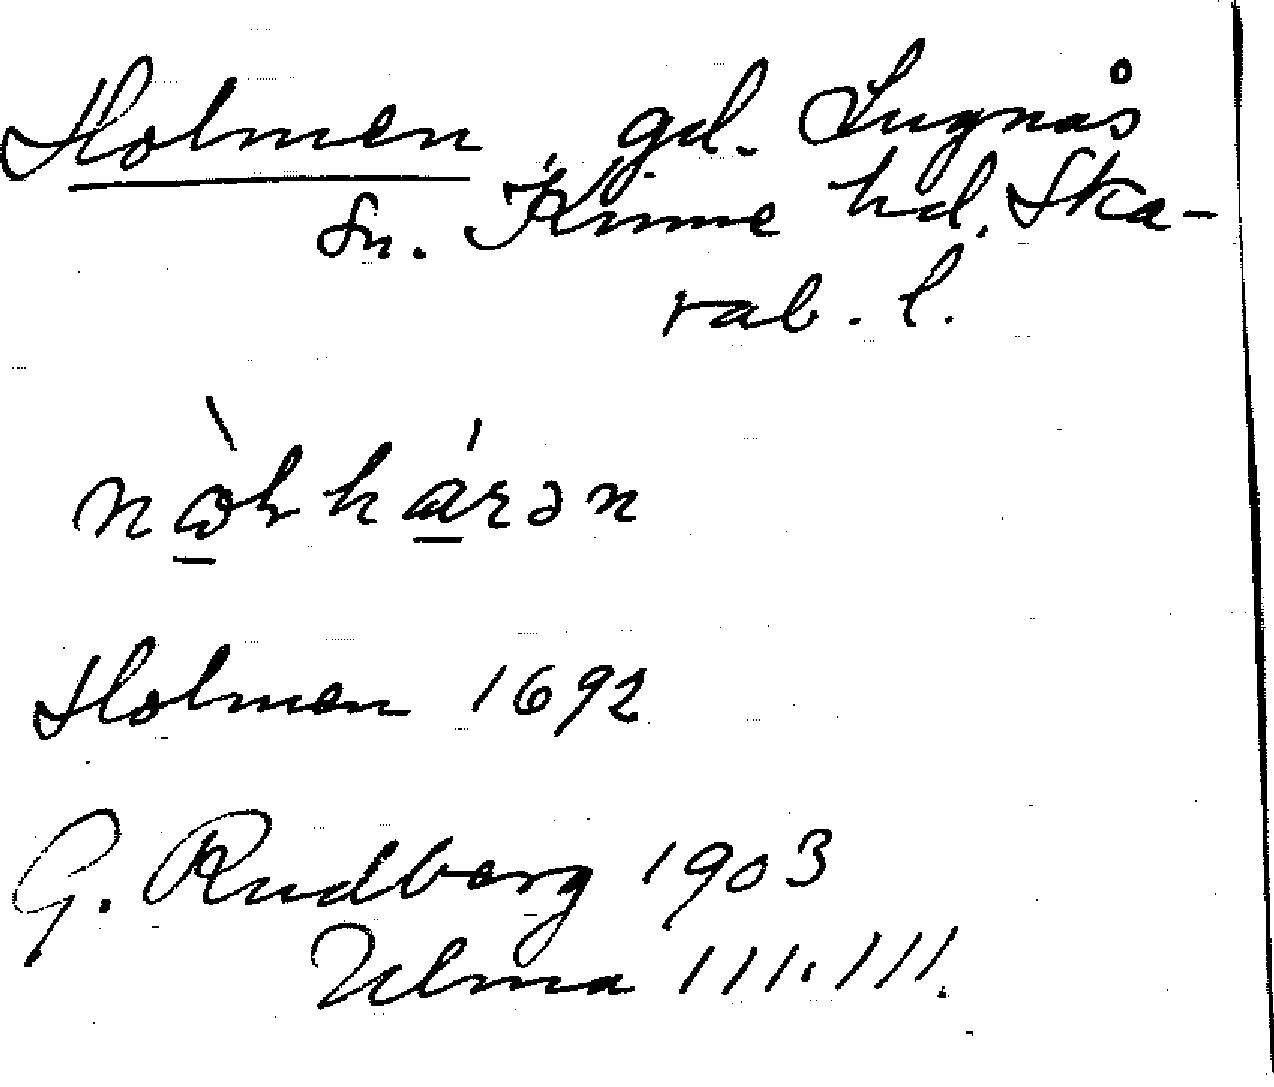 Holmen, gd. Lugnås
sn. Kinne hd. Ska-
rab. l.
Holmen 1692
G. Rudberg 1903
Ulma 111:111.